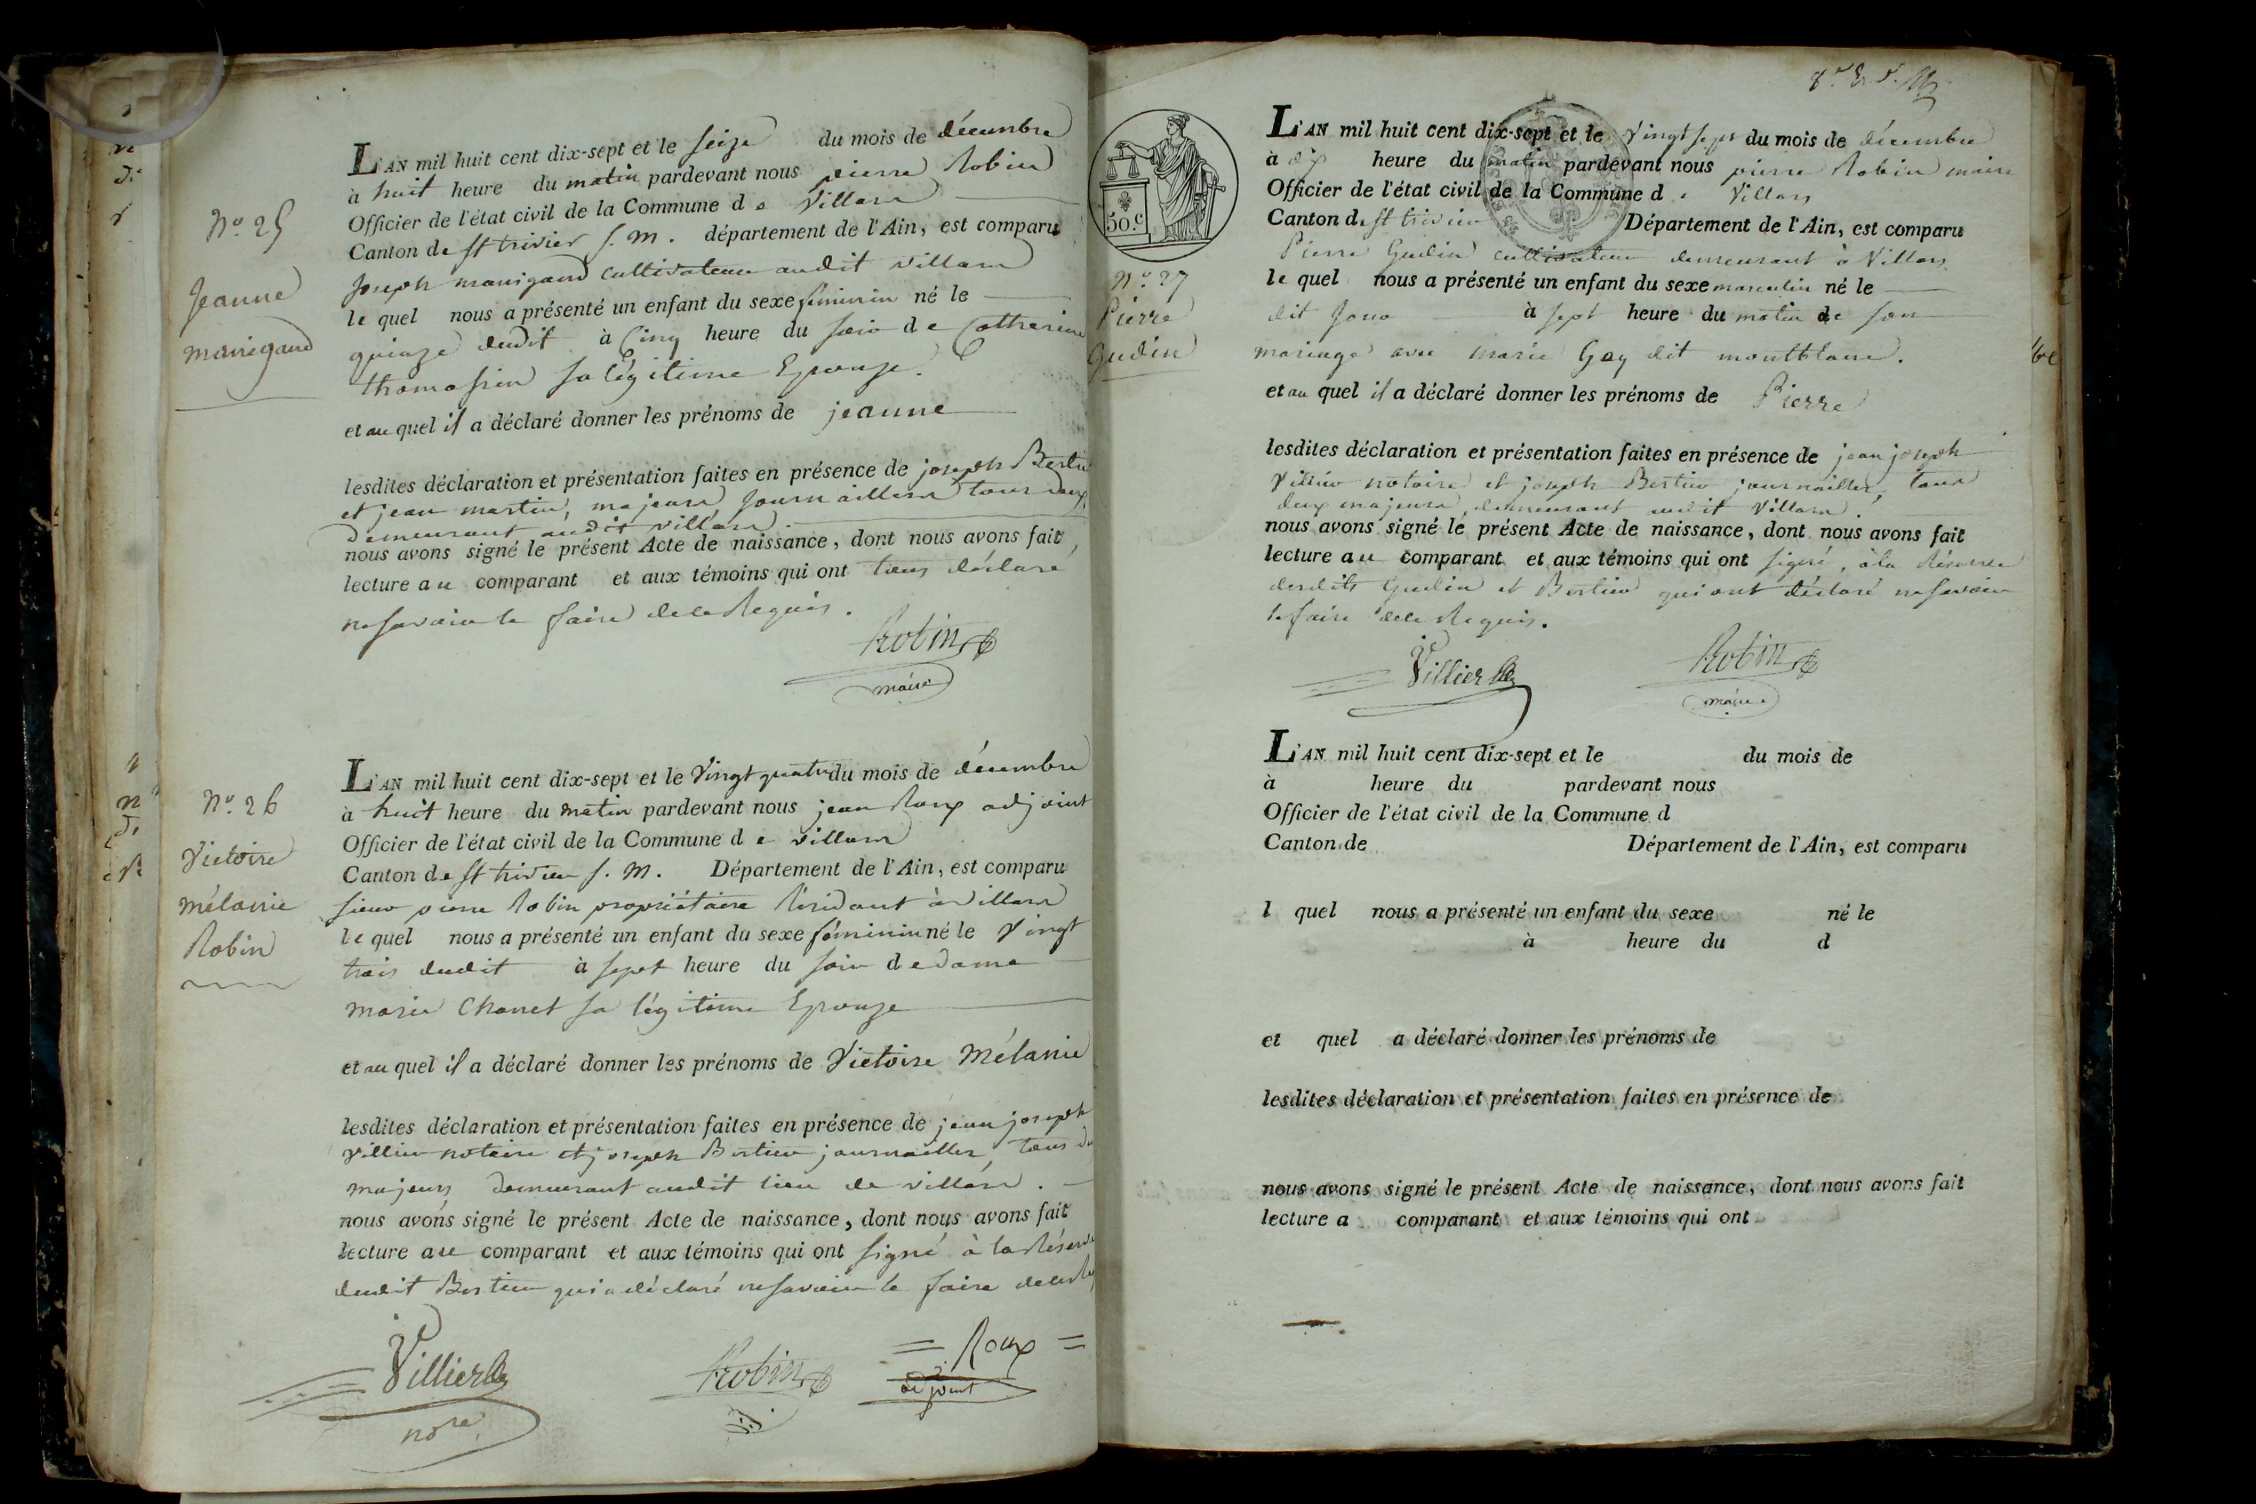 N.º 25
Jeanne
manigand
L'AN mil huit cent dix-sept et le seize du mois de décembre
à huit heure du matin pardevant nous pierre Robin
Officier de l'état civil de la Commune de Villars
Canton de st trivier s. m. département de l'Ain, est comparu
Joseph manigand cultivateur audit villars
le quel nous a présenté un enfant du sexe féminin né le
quinze dudit à Cinq heure du soir de Catherine
thomassin sa légitime Epouze.
et au quel il a déclaré donner les prénoms de jeanne
lesdites déclaration et présentation faites en présence de joseph
et jean martin, majeurs journailler tous deux
demeurant audit villars
nous avons signé le présent Acte de naissance, dont nous avons fait
lecture au comparant et aux témoins qui ont tous déclaré
ne savoir le faire de ce Requis.
Robin
maire
N.º 26
Victoire
mélanie
Robin
L'AN mil huit cent dix-sept et le Vingt quatre du mois de décembre
à huit heure du matin pardevant nous jean Roux adjoint
Officier de l'état civil de la Commune de villars
Canton de st trivier s. m. Département de l'Ain, est comparu
sieur pierre Robin propriétaire Résidant à villars
le quel nous a présenté un enfant du sexe féminin né le Vingt
trois dudit à sept heure du soir de dame
marie Chanet sa légitime Epouze
et au quel il a déclaré donner les prénoms de Victoire Mélanie
lesdites déclaration et présentation faites en présence de jean joseph
Villier notaire et joseph Bertier journailler, tous
majeurs demeurant audit lieu de villars.
nous avons signé le présent Acte de naissance, dont nous avons fait
lecture au comparant et aux témoins qui ont signé à la Réserve
dudit Bertier qui a déclaré ne savoir le faire de ce
Villier
nore
Robin
Roux
adjoint
50.c
N.º 27
Pierre
Gudin
L'AN mil huit cent dix-sept et le Vingt sept du mois de décembre
à dix heure du matin pardevant nous pierre Robin maire
Officier de l'état civil de la Commune de Villars
Canton de st trivier Département de l'Ain, est comparu
Pierre Gudin cultivateur demeurant à Villars
le quel nous a présenté un enfant du sexe masculin né le
dit jour à sept heure du matin de son
mariage avec marie Gay dit montblanc.
et au quel il a déclaré donner les prénoms de Pierre
lesdites déclaration et présentation faites en présence de jean joseph
Villier notaire et joseph Bertier journailler, tous
deux majeurs, demeurant audit Villars.
nous avons signé le présent Acte de naissance, dont nous avons fait
lecture au comparant et aux témoins qui ont signé, à la Réserve
desdits Gudin et Bertier qui ont déclaré ne savoir
le faire de ce Requis.
Villier
Robin
maire
L'AN mil huit cent dix-sept et le du mois de
à heure du pardevant nous
Officier de l'état civil de la Commune d
Canton de Département de l'Ain, est comparu
l quel nous a présenté un enfant du sexe né le
à heure du d
et quel a déclaré donner les prénoms de
lesdites déclaration et présentation faites en présence de
nous avons signé le présent Acte de naissance, dont nous avons fait
lecture a comparant et aux témoins qui ont